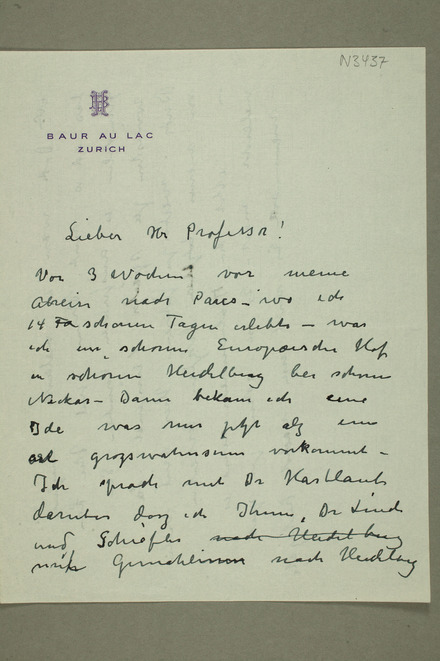 N3437
BAUR AU LAC
ZURICH
Lieber Hr Professor!
Vor 3 Wochen vor meine
Abreise nach Paris – wo ich
14 schonen Tagen erlebte – was
ich im schonen Europaische Hof
in schonen Heidelberg bei schone
Neckar – Dann bekam ich eine
Ide was mir jetzt als eine
art grosswahnsinn vorkommt –
Ich sprach mit Dr Hartlaub
daruber das ich Ihnen, Dr
und nach Heidelberg
nach Heidelberg